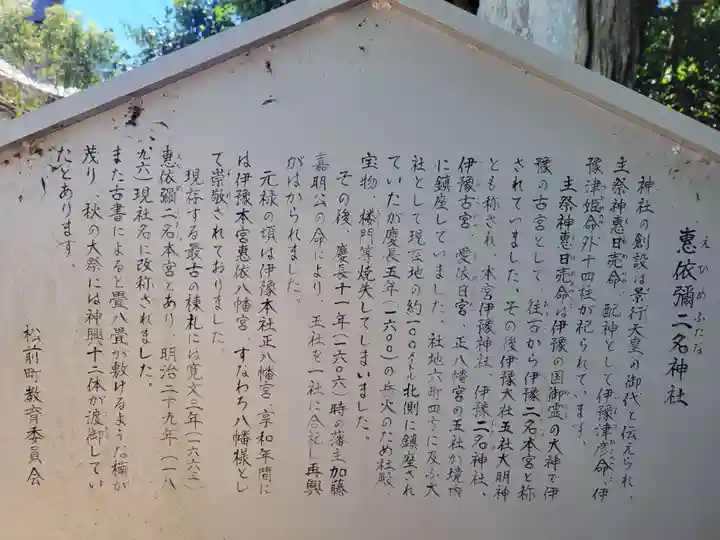 えひめふたな
惠依彌二名神社
神社の創設は景行天皇の御代と伝えられ、
主祭神惠日売命、配神として伊豫津彦命、伊
豫津姫命外十四柱が祀られています。
主祭神惠日売命は伊豫の国御霊の大神で伊
豫の古宮として、往古から伊豫二名本宮と称
されていました。その後伊豫大社五社大明神
とも称され、本宮伊豫神社、伊豫二名神社、
伊豫古宮、愛依日宮、正八幡宮の五社が境内
に鎮座していました。社地六町四方に及ぶ大
社として現在地の約一〇〇メートル北側に鎮座され
ていたが慶長五年(一六〇〇)の兵火のため社殿、
宝物、楼門等焼失してしまいました。
その後、慶長十一年(一六〇六)時の藩主加藤
嘉明公の命により、五社を一社に合祀し再興
がはかられました。
元禄の頃は伊豫本社正八幡宮、享和年間に
は伊豫本宮惠依八幡宮、すなわち八幡様とし
て崇敬されておりました。
現存する最古の棟札には寛文三年(一六六三)
惠依彌二名本宮とあり、明治二十九年(一八
九六)現社名に改称されました。
また古書によると畳八畳が敷けるような楠が
茂り、秋の大祭には神輿十二体が渡御してい
たとあります。
松前町教育委員会